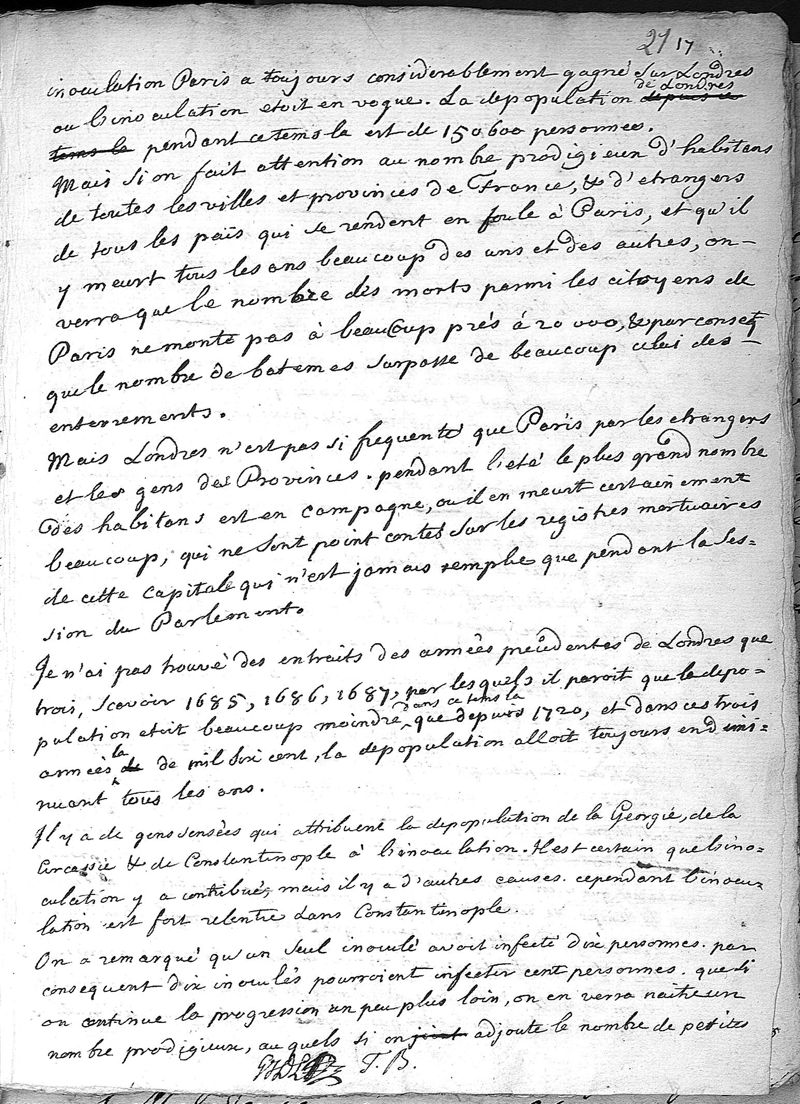 21 17
inoculation Paris a toujours considerablement gagné sur Londres
ou l'inoculation etoit en vogue. La depopulation de Londres depuis ce
tems la pendant ce tems la est de 150600 personnes.
Mais si on fait attention au nombre prodigieux d'habitans
de toutes les villes et provinces de France, & d'etrangers
de tous les païs qui se rendent en foule à Païis, et qu'il
y meurt tous les ans beaucoup des uns et des autres, on-
verra que le nombre des morts parmi les citoyens de
Paris ne monte pas à beaucoup prés á 20 000, & par conseq
que le nombre de batemes surpasse de beaucoup celui des
enterrements.
Mais Londres n'est pas si frequenté que Païis par les etrangers
et les gens des Provinces. pendant l'eté le plus grand nombre
des habitans est en campagne, ou il en meurt certainement
beaucoup, qui ne sont point contés sur les registres mortuaires
de cette capitale qui n'est jamais remplie que pendant la ses=
sion du Parlement.
Je n'ai pas trouvé des extraits des années precedentes de Londres que
trois, scavoir 1685, 1686, 1687, par lesquels il paroit que la depo=
pulation etoit beaucoup moindre dans ce tems la que depuis 1720, et dans ces trois
années la de de mil six cent, la depopulation alloit toujours en dimi=
nuant tous les ans.
Il y a de gens sensées qui attribuent la depopulation de la Georgie, de la
Circassie & de Constantinople à l'inoculation. Il est certain que l'ino=
culation y a contribué, mais il y a d'autres causes. cependant l'inocu=
lation est fort relentie dans Constantinople.
On a remarqué qu'un seul inoculé avoit infecté dix personnes. par
consequent dix inoculés pourroient infecter cent personnes. que si
on continue la progression un peu plus loin, on en verra naitre un
nombre prodigieux, au quels si on joint adjoute le nombre de petites
T. B.